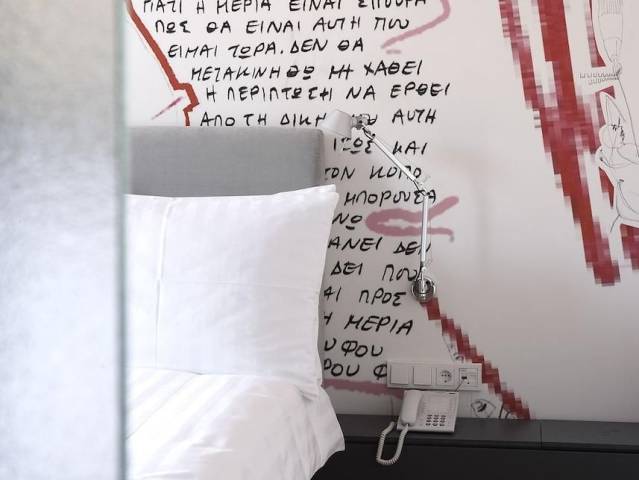 ΓΙΑΤΙ Η ΜΕΡΙΑ ΕΙΝΑΙ ΣΠΟΥΡΑ
ΠΩΣ ΘΑ ΕΙΝΑΙ ΑΥΤΗ ΠΟΥ
ΕΙΜΑΙ ΤΩΡΑ. ΔΕΝ ΘΑ
ΜΕΤΑΚΙΝΗΘΩ ΜΗ ΧΑΘΕΙ
Η ΠΕΡΙΠΤΩΣΗ ΝΑ ΕΡΘΕΙ
ΑΠΟ ΤΗ ΔΙΚΗ ΑΥΤΗ
ΚΑΙ
ΤΟΝ ΚΟΠΟ
ΜΠΟΡΟΥΣΑ
ΔΕΝ
ΔΕΙ ΠΟΥ
ΠΡΟΣ
Η ΜΕΡΙΑ
ΦΟΥ